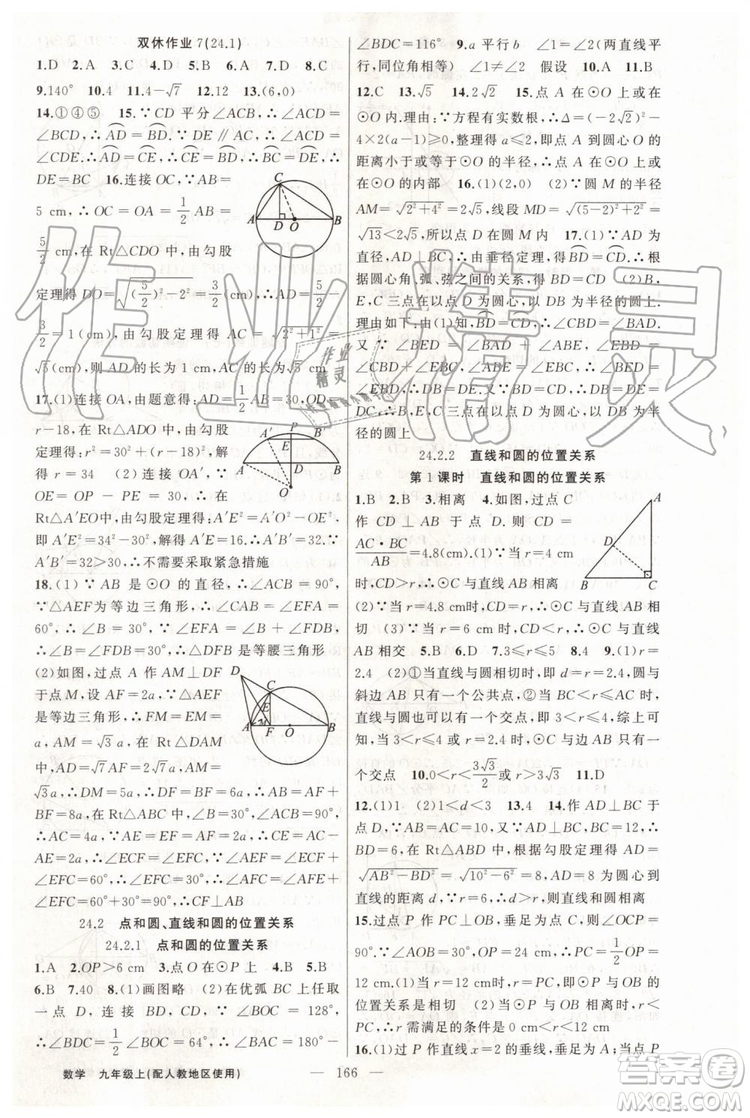 双休作业7(24.1)
1.D 2.A 3.C 4.D 5.A 6.D 7.D 8.C
9.140° 10.4 11.4-√7 12.12 13.(6,0)
14.①④⑤ 15.∵CD平分∠ACB,∴∠ACD=
∠BCD,∴AD=BD.∵DE∥AC,∴∠ACD=
∠CDE,∴AD=CE,∴BD=CE,∴∠CDE=
∠BCD,∴DE=CE 16.连接OC,∵AB=
5 cm,∴OC=OA=1/2 AB=
5/2 cm,在Rt△CDO中,由勾股
定理得DO=√((5/2)²-2²)=
3/2=1(cm),由勾股定理得AC=√(2²+1²)=
√5(cm),则AD的长为1 cm,AC的长为√5 cm
17.(1)连接OA,由题意得:AD=1/2 AB=30,OD=
r-18,在Rt△ADO中,由勾股
定理得:r²=30²+(r-18)²,解
得r=34 (2)连接OA′,∵
OE=OP-PE=30,∴在
Rt△A′EO中,由勾股定理得:A′E²=A′O²-OE²,
即:A′E²=34²-30²,解得:A′E=16.∴A′B′=32.∵
A′B′=32>30,∴不需要采取紧急措施
18.(1)∵AB是⊙O的直径,∴∠ACB=90°,
∵△AEF为等边三角形,∴∠CAB=∠EFA=
60°,∴∠B=30°,∵∠EFA=∠B+∠FDB,
∴∠B=∠FDB=30°,∴△DFB是等腰三角形
(2)如图,过点A作AM⊥DF
于点M,设AF=2a,∵△AEF
是等边三角形,∴FM=EM=
a,AM=√3a,在Rt△DAM
中,AD=√7AF=2√7a,AM=
√3a,∴DM=5a,∴DF=BF=6a,
∴AB=AF+BF=8a,在Rt△ABC中,∠B=30°,
∴AC=4a,∵AE=EF=AF=2a,
∴CE=AC-AE=2a,∴∠ECF=∠EFC,∵∠AEF=∠ECF+
∠EFC=60°,∴∠EFC=30°,∴∠AFC=∠AFE+
∠EFC=60°+30°=90°,∴CF⊥AB
24.2 点和圆、直线和圆的位置关系
24.2.1 点和圆的位置关系
1.A 2.OP>6 cm 3.点O在⊙P上 4.B 5.B
6.B 7.40 8.(1)画图略 (2)在优弧BC上任取
一点D,连接BD,CD,∵∠BOC=128°,
∴∠BDC=1/2∠BOC=64°,∴∠BAC=180°-
∠BDC=116° 9.a平行b ∠1=∠2(两直线平
行,同位角相等) ∠1≠∠2 假设 10.A 11.D
12.C 13.√5 14.2√2 15.点A在⊙O上或在
⊙O内.理由:∵方程有实数根,∴Δ=(-2√2)²-
4×2(a-1)≥0,整理得a≤2,即点A到圆心O的
距离小于或等于⊙O的半径,∴点A在⊙O上或在
⊙O的内部 16.(1)(2,0) (2)∵圆M的半径
AM=√(2²+4²)=2√5,线段MD=√((5-2)²+2²)=
√13<2√5,∴点D在圆M内 17.(1)∵AD为
直径,AD⊥BC,∴由垂径定理得:BD=CD.∴
根据圆心角、弧、弦之间的关系得:BD=CD (2)B,
E,C三点在以点D为圆心,以DB为半径的圆上.
理由如下:由(1)知:BD=CD,∴∠BAD=∠CBD.
又∵BE平分∠ABC,∴∠CBE=∠ABE,∵∠DBE=
∠CBD+∠CBE,∠DEB=∠BAD+∠ABE,
∠CBE=∠ABE,∴∠DBE=∠DEB,∴DB=DE.
由(1)知:BD=CD,∴DB=DE=DC.∴B,
E,C三点在以点D为圆心,以DB为半径
的圆上
24.2.2 直线和圆的位置关系
第1课时 直线和圆的位置关系
1.B 2.B 3.相离 4.如图,过点C
作CD⊥AB于点D,则CD=
AC·BC/AB=4.8(cm).(1)当r=4 cm
时,CD>r,∴⊙C与直线AB相离
(2)∵当r=4.8 cm时,CD=r,∴⊙C与直线AB相
切 (3)∵当r=6 cm时,CD<r,∴⊙C与直线
AB相交 5.B 6.D 7.3≤r≤5 8.4 9.(1)r=
2.4 (2)当直线与圆相切时,即r=2.4,圆与
斜边AB只有一个公共点;当BC<r≤AC时,
直线与圆也有一个交点,即3<r≤4,综上可
知:当r=2.4或3<r≤4时,⊙C与线段AB只有一
个交点 10.0<r<3√3/2 11.D
12.(1)1 (2)1<d<3 13.4 14.作AD⊥BP于
点D,∵AB=AC,∴BD=1/2 BC,又∵BC=16,∴
BD=8.又∵AB=10,∴在Rt△ABD中,AD=
√(AB²-BD²)=√(10²-8²)=6,∴点A到
直线的距离等于半径,∴⊙A与BP相切
15.过点P作PC⊥OB,垂足为点C,则∠OCP=
90°.∵∠AOB=30°,OP=24 cm,∴PC=1/2 OP=
12 cm.(1)当r=12 cm时,r=PC,∴⊙P与OB
的位置关系是相切 (2)当⊙P与OB相离时,r<
PC,∴r需满足的条件是0 cm<r<12 cm
16.(1)过点P作直线x=2的垂线,垂足为A.
数学 九年级上(配人教地区使用) — 166 —
作业精灵
作业精灵